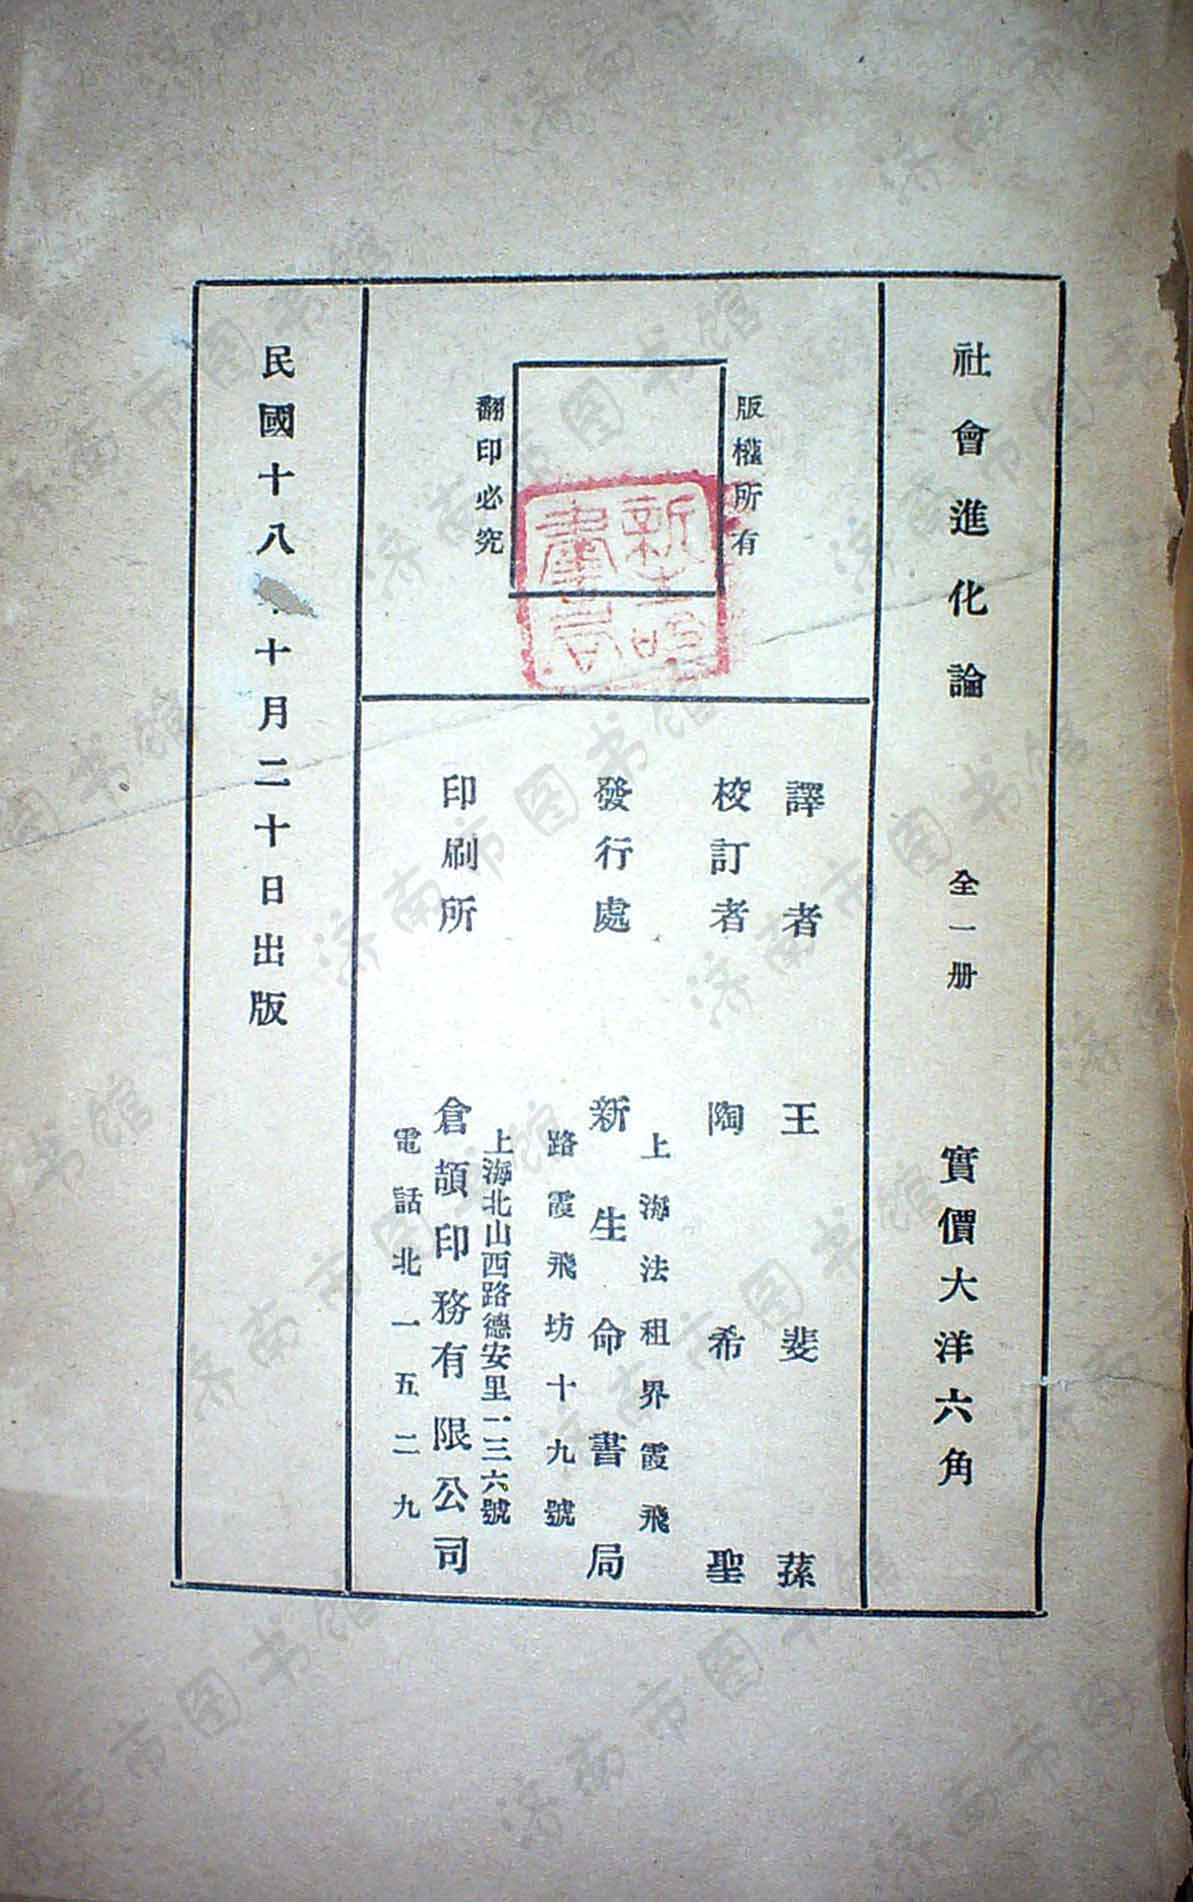 社會進化論 全一册 實價大洋六角
版權所有
翻印必究
新生命書局
譯者 王斐蓀
校訂者 陶希聖
上海法租界霞飛
發行處 新生命書局
路霞飛坊十九號
上海北山西路德安里二三六號
印刷所 倉頡印務有限公司
電話北一五二九
民國十八年十月二十日出版
济南市图书馆